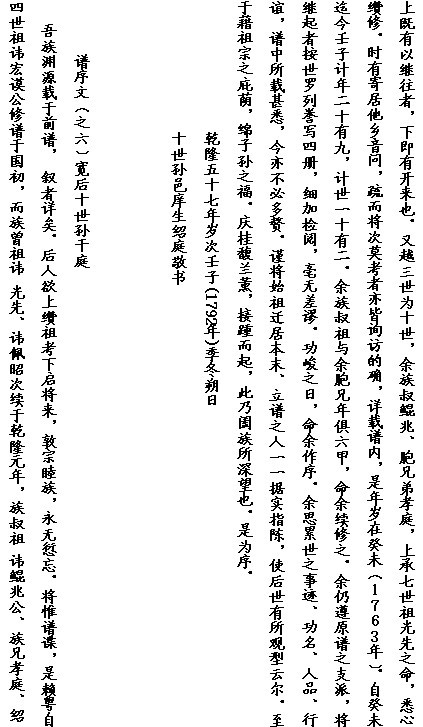 上既有以继往者，下即有开来也。又越三世为十世，余族叔鲲兆、胞兄弟孝庭，上承七世祖光先之命，悉心
缵修。时有寄居他乡音问，疏而将次莫考者亦皆询访的确，详载谱内，是年岁在癸未（1763年）。自癸未
迄今壬子计年二十有九，计世一十有二。余族叔祖与余胞兄年俱六甲，命余续修之。余仍遵原谱之支派，将
继起者按世罗列誊写四册，细加检阅，毫无差谬。功峻之日，命余作序。余思累世之事迹、功名、人品、行
谊，谱中所载甚悉，今亦不必多赘。谨将始祖迁居本末、立谱之人一一据实指陈，使后世有所观型云尔。至
于藉祖宗之庇荫，绵子孙之福。庆桂馥兰薰，接踵而起，此乃阖族所深望也。是为序。
乾隆五十七年岁次壬子(1792年)季冬朔日
十世孙邑庠生绍庭敬书
谱序文（之六）寛后十世孙干庭
吾族渊源载于前谱，叙者详矣。后人欲上缵祖考下启将来，敦宗睦族，永无愆忘。将惟谱谍，是赖粤自
四世祖讳宏谟公修谱于国初，而族曾祖讳 光先、讳佩昭次续于乾隆元年，族叔祖 讳鲲兆公、族兄孝庭、绍